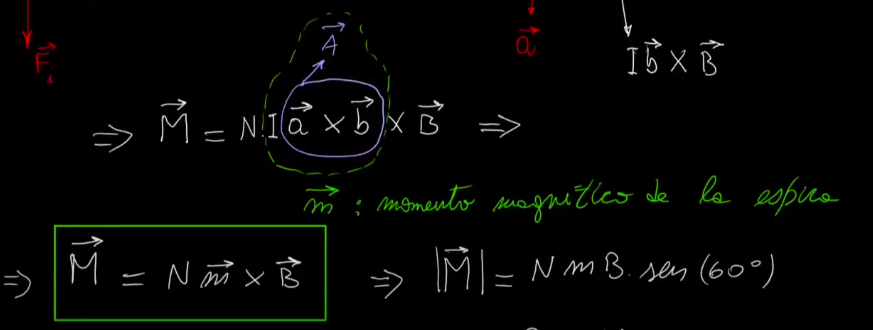 F⃗₁
a⃗
I b⃗ × B⃗
A⃗
⇒ M⃗ = N.I a⃗ × b⃗ × B⃗ ⇒
m⃗ : momento magnético de la espira
⇒ M⃗ = N m⃗ × B⃗ ⇒ |M⃗| = N m B. sen (60°)